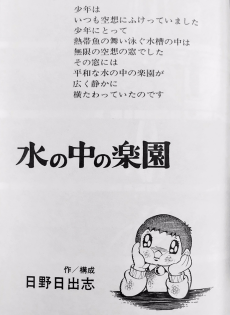 少年は
いつも空想にふけっていました
少年にとって
熱帯魚の舞い泳ぐ水槽の中は
無限の空想の窓でした
その窓には
平和な水の中の楽園が
広く静かに
横たわっていたのです
水の中の楽園
作／構成
日野日出志